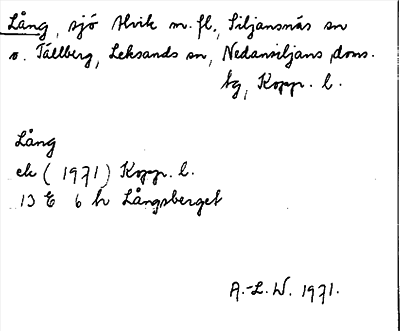 Lång, sjö Alvik m. fl., Siljansnäs sn
o. Tällberg, Leksands sn, Nedansiljans doms.
hg, Kopp. l.
Lång
ek (1971) Kopp. l.
13 E 6 h Långsberget
A.-L. W. 1971.